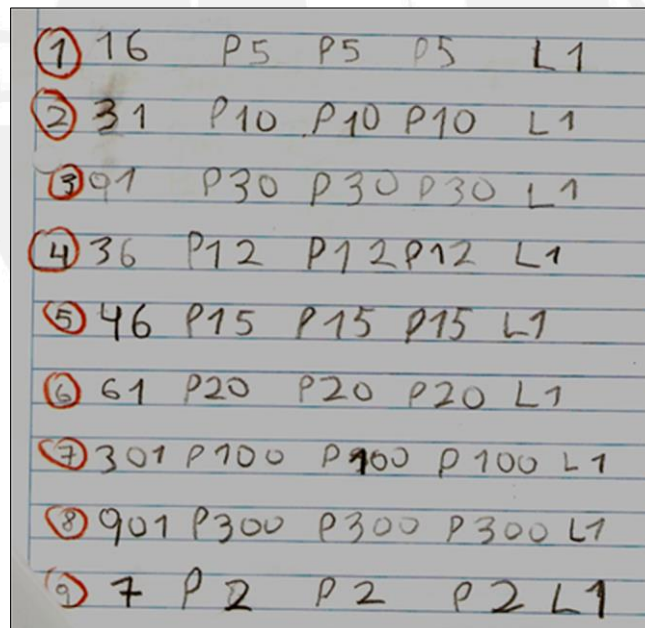 1 16 P5 P5 P5 L1
2 31 P10 P10 P10 L1
3 91 P30 P30 P30 L1
4 36 P12 P12 P12 L1
5 46 P15 P15 P15 L1
6 61 P20 P20 P20 L1
7 301 P100 P100 P100 L1
8 901 P300 P300 P300 L1
9 7 P2 P2 P2 L1